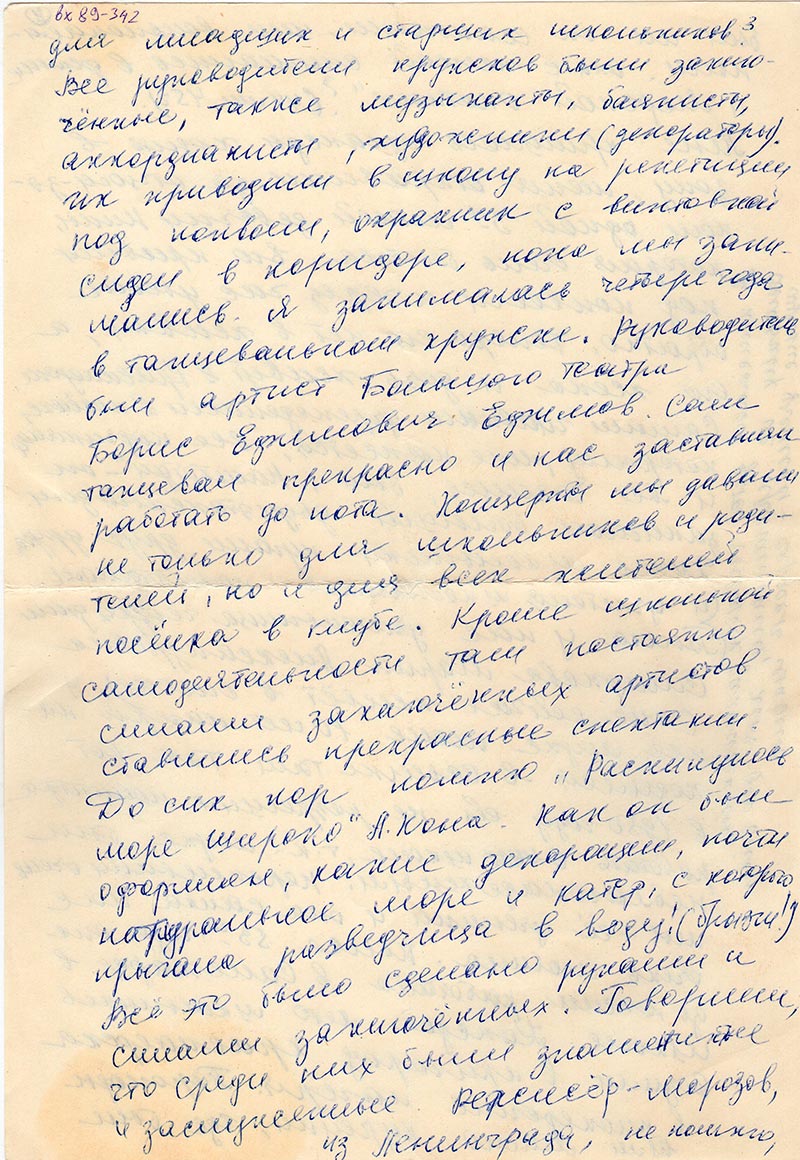 вх 89-342
3
для младших и старших школьников.
Все руководители кружков были заклю-
чённые, также музыканты, баянисты,
аккордианисты, художники (декораторы).
Их приводили в школу на репетиции
под конвоем, охранник с винтовкой
сидел в коридоре, пока мы зани-
мались. Я занималась четыре года
в танцевальном кружке. Руководитель
был артист Большого театра
Борис Ефимович Ефимов. Сам
танцевал прекрасно и нас заставлял
работать до пота. Концерты мы давали
не только для школьников и роди-
телей, но и для всех жителей
посёлка в клубе. Кроме школьной
самодеятельности там постоянно
силами заключённых артистов
ставились прекрасные спектакли.
До сих пор помню „Раскинулось
море широко" А. Кона. Как он был
оформлен, какие декорации, почти
натуральное море и катер, с которого
прыгала разведчица в воду! (брызги!)
Всё это было сделано руками и
силами заключённых. Говорили,
что среди них были знаменитые
и заслуженные. Режиссёр-Морозов,
из Ленинграда, не помню,